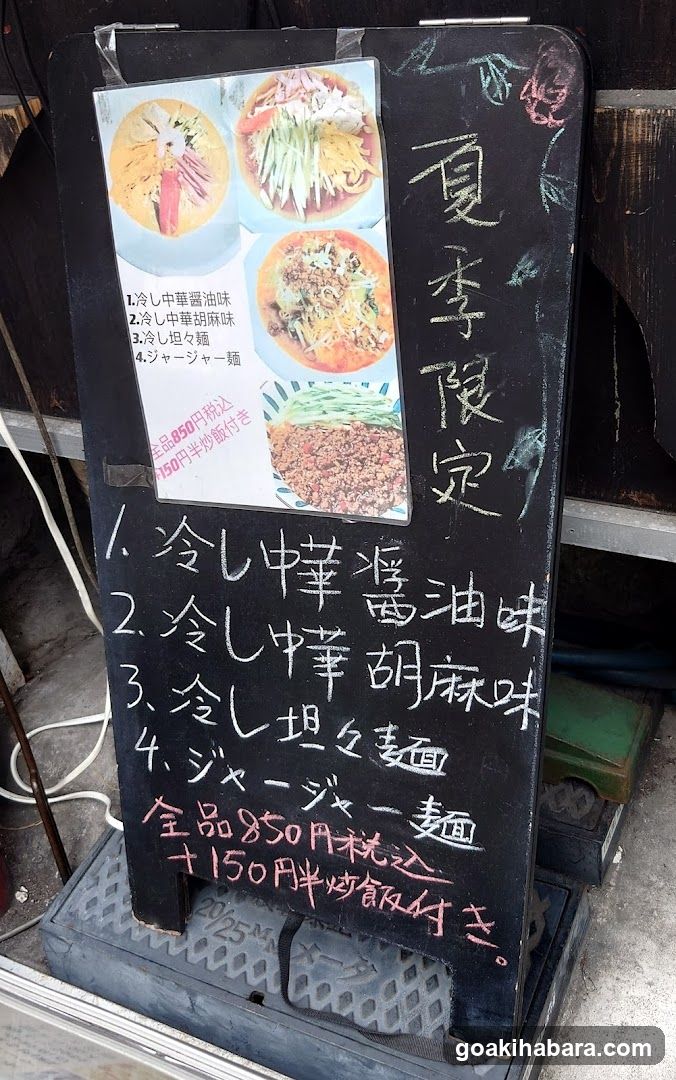 夏季限定
1.冷し中華醤油味
2.冷し中華胡麻味
3.冷し坦々麺
4.ジャージャー麺
全品850円税込
+150円半炒飯付き
1.冷し中華醤油味
2.冷し中華胡麻味
3.冷し坦々麺
4.ジャージャー麺
全品850円税込
+150円半炒飯付き。
20/25MM メータ
goakihabara.com